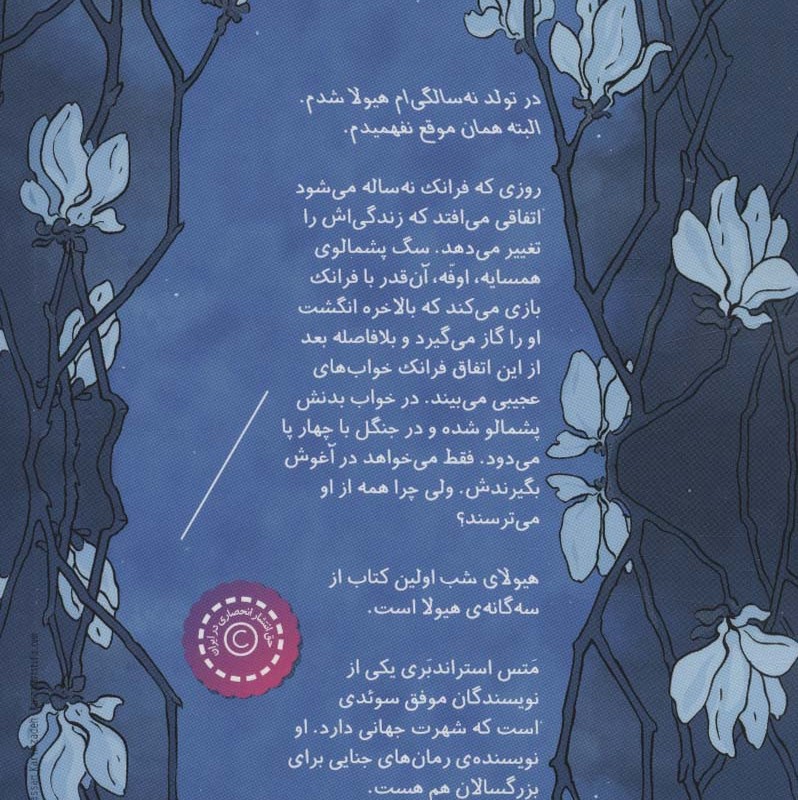 در تولد نه‌سالگی‌ام هیولا شدم.
البته همان موقع نفهمیدم.
روزی که فرانک نه‌ساله می‌شود
اتفاقی می‌افتد که زندگی‌اش را
تغییر می‌دهد. سگ پشمالوی
همسایه، اوفّه، آن‌قدر با فرانک
بازی می‌کند که بالاخره انگشت
او را گاز می‌گیرد و بلافاصله بعد
از این اتفاق فرانک خواب‌های
عجیبی می‌بیند. در خواب بدنش
پشمالو شده و در جنگل با چهار پا
می‌دود. فقط می‌خواهد در آغوش
بگیرندش. ولی چرا همه از او
می‌ترسند؟
هیولای شب اولین کتاب از
سه‌گانه‌ی هیولا است.
مَتس استراندبَری یکی از
نویسندگان موفق سوئدی
است که شهرت جهانی دارد. او
نویسنده‌ی رمان‌های جنایی برای
بزرگسالان هم هست.
حق انتشار انحصاری در ایران
©